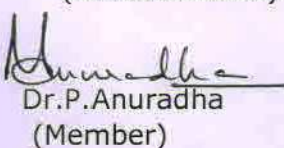 Anuradha
Dr.P.Anuradha
(Member)